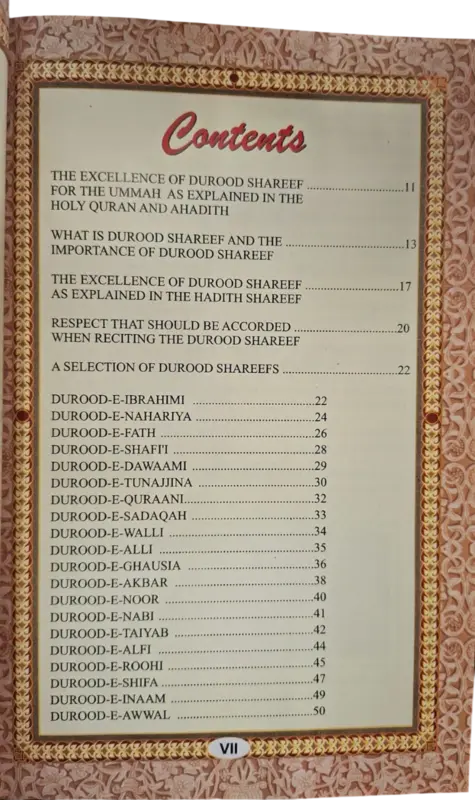 Contents
THE EXCELLENCE OF DUROOD SHAREEF ............................11
FOR THE UMMAH AS EXPLAINED IN THE
HOLY QURAN AND AHADITH
WHAT IS DUROOD SHAREEF AND THE ..................................13
IMPORTANCE OF DUROOD SHAREEF
THE EXCELLENCE OF DUROOD SHAREEF ............................17
AS EXPLAINED IN THE HADITH SHAREEF
RESPECT THAT SHOULD BE ACCORDED ..............................20
WHEN RECITING THE DUROOD SHAREEF
A SELECTION OF DUROOD SHAREEFS ..................................22
DUROOD-E-IBRAHIMI ....................................22
DUROOD-E-NAHARIYA ...................................24
DUROOD-E-FATH .............................................26
DUROOD-E-SHAFI'I .........................................28
DUROOD-E-DAWAAMI ...................................29
DUROOD-E-TUNAJJINA ..................................30
DUROOD-E-QURAANI......................................32
DUROOD-E-SADAQAH ...................................33
DUROOD-E-WALLI ...........................................34
DUROOD-E-ALLI .............................................35
DUROOD-E-GHAUSIA .....................................36
DUROOD-E-AKBAR ........................................38
DUROOD-E-NOOR ...........................................40
DUROOD-E-NABI .............................................41
DUROOD-E-TAIYAB ........................................42
DUROOD-E-ALFI ..............................................44
DUROOD-E-ROOHI ..........................................45
DUROOD-E-SHIFA ............................................47
DUROOD-E-INAAM .........................................49
DUROOD-E-AWWAL .......................................50
VII